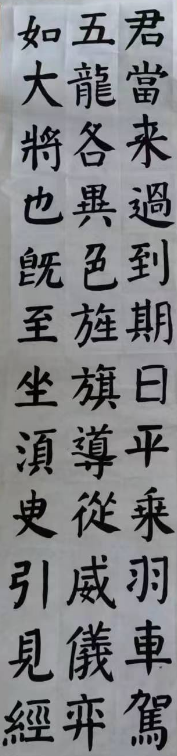 君當来過到期日平乗羽車駕
五龍各異色旌旗導從威儀弈
如大將也旣至坐須臾引見經